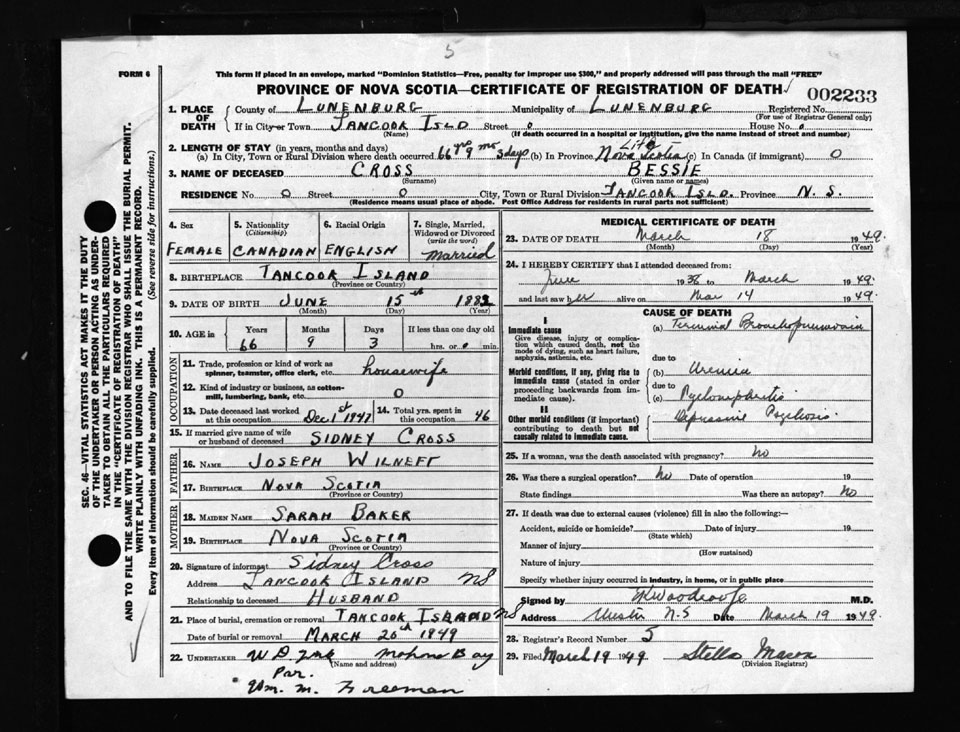 5
FORM 6
This form if placed in an envelope, marked "Dominion Statistics—Free, penalty for improper use $300," and properly addressed will pass through the mail "FREE"
PROVINCE OF NOVA SCOTIA—CERTIFICATE OF REGISTRATION OF DEATH
002233
1. PLACE OF DEATH { County of LUNENBURG Municipality of LUNENBURG Registered No.
(For use of Registrar General only)
If in City or Town TANCOOK ISLD Street 0 House No. 0
(Name) (If death occurred in a hospital or institution, give the name instead of street and number)
2. LENGTH OF STAY (in years, months and days)
(a) In City, Town or Rural Division where death occurred 66 yrs 9 mo 3 days (b) In Province Life Nova Scotia (c) in Canada (if immigrant) 0
3. NAME OF DECEASED CROSS BESSIE
(Surname) (Given name or names)
RESIDENCE No 0 Street 0 City, Town or Rural Division TANCOOK ISLD. Province N. S.
(Residence means usual place of abode. Post Office Address for residents in rural parts not sufficient)
4. Sex 5. Nationality (Citizenship) 6. Racial Origin 7. Single, Married, Widowed or Divorced (write the word)
FEMALE CANADIAN ENGLISH Married
8. BIRTHPLACE TANCOOK ISLAND
(Province or Country)
9. DATE OF BIRTH JUNE 15th 1882
(Month) (Day) (Year)
10. AGE in { Years Months Days If less than one day old
66 9 3 hrs. or 0 min.
OCCUPATION
11. Trade, profession or kind of work as spinner, teamster, office clerk, etc. housewife
12. Kind of industry or business, as cotton-mill, lumbering, bank, etc. 0
13. Date deceased last worked at this occupation Dec 1st 1947 14. Total yrs. spent in this occupation 46
15. If married give name of wife or husband of deceased SIDNEY CROSS
FATHER
16. NAME JOSEPH WILNEFF
17. BIRTHPLACE NOVA SCOTIA
(Province or Country)
MOTHER
18. MAIDEN NAME SARAH BAKER
19. BIRTHPLACE NOVA SCOTIA
(Province or Country)
20. Signature of informant Sidney Cross
Address TANCOOK ISLAND NS
Relationship to deceased HUSBAND
21. Place of burial, cremation or removal TANCOOK ISLAND NS
Date of burial or removal MARCH 20th 1949
22. UNDERTAKER W D Mahone Bay
(Name and address)
Par.
Wm. M. Freeman
MEDICAL CERTIFICATE OF DEATH
23. DATE OF DEATH March 18 1949.
(Month) (Day) (Year)
24. I HEREBY CERTIFY that I attended deceased from:
June 1938 to March 1949.
and last saw her alive on Mar 14 1949.
CAUSE OF DEATH
I
Immediate cause
Give disease, injury or complication which caused death, not the mode of dying, such as heart failure, asphyxia, asthenia, etc.
(a) Terminal Bronchopneumonia
due to
Morbid conditions, if any, giving rise to immediate cause (stated in order proceeding backwards from immediate cause).
(b) Uremia
due to
(c) Pyelonephritis
II
Other morbid conditions (if important) contributing to death but not causally related to immediate cause.
Depressive Psychosis
25. If a woman, was the death associated with pregnancy? No
26. Was there a surgical operation? No Date of operation 19
State findings Was there an autopsy? No
27. If death was due to external causes (violence) fill in also the following:—
Accident, suicide or homicide? Date of injury 19
(State which)
Manner of injury
(How sustained)
Nature of injury
Specify whether injury occurred in industry, in home, or in public place
Signed by M.D.
Address Chester N.S Date March 19 1949
28. Registrar's Record Number 5
29. Filed March 19 1949 Stella Mason
(Division Registrar)
SEC. 46—VITAL STATISTICS ACT MAKES IT THE DUTY
OF THE UNDERTAKER OR PERSON ACTING AS UNDER-
TAKER TO OBTAIN ALL THE PARTICULARS REQUIRED
IN THE "CERTIFICATE OF REGISTRATION OF DEATH"
AND TO FILE THE SAME WITH THE DIVISION REGISTRAR WHO SHALL ISSUE THE BURIAL PERMIT.
WRITE PLAINLY WITH UNFADING INK. THIS IS A PERMANENT RECORD.
Every item of information should be carefully supplied. (See reverse side for instructions.)